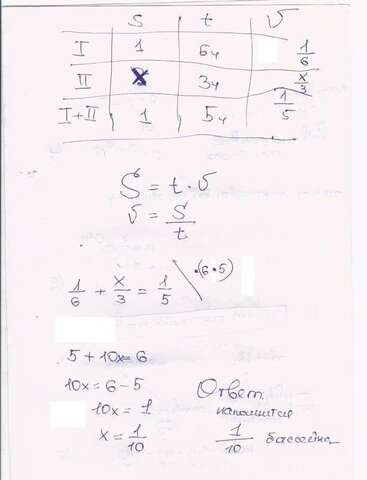 S t v
I 1 6ч 1/6
II x 3ч x/3
I+II 1 5ч 1/5
S = t · v
v = S/t
1/6 + x/3 = 1/5 ·(6·5)
5 + 10x = 6
10x = 6 - 5
10x = 1
x = 1/10
Ответ:
наполнится
1/10 бассейна